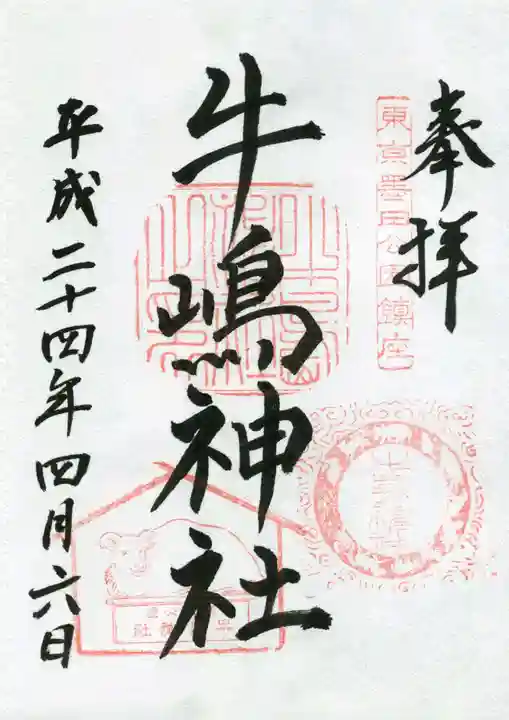 奉拝
東京墨田公園鎮座
牛嶋神社
平成二十四年四月六日